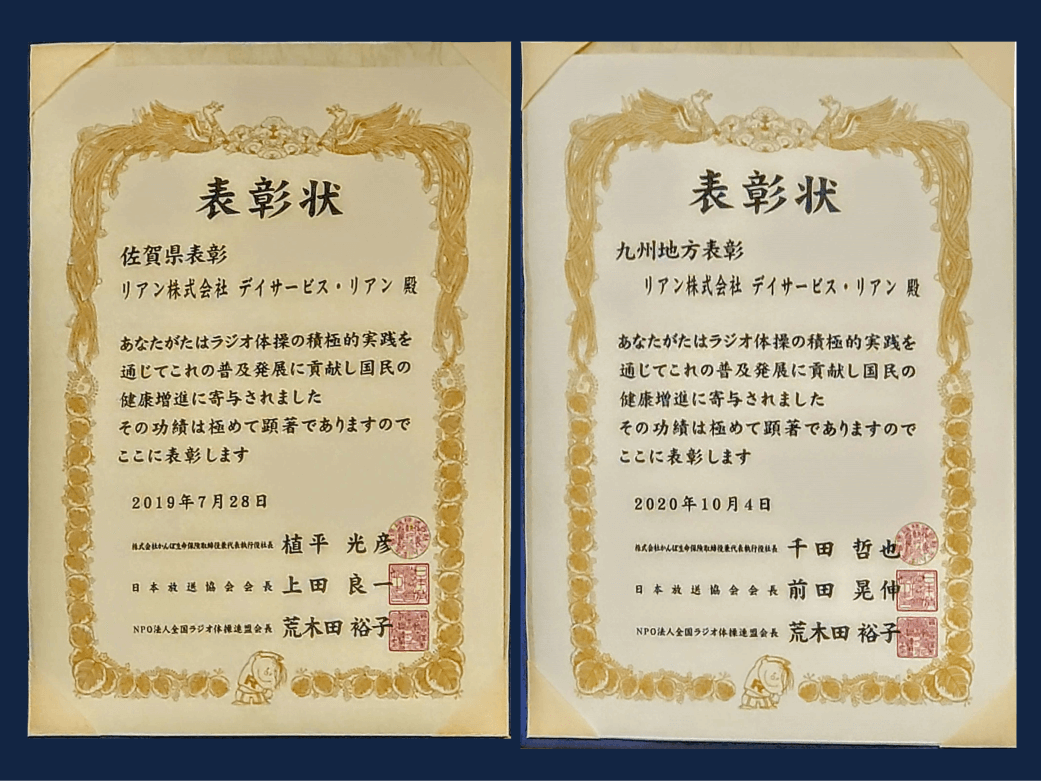 表彰状
佐賀県表彰
リアン株式会社 デイサービス・リアン 殿
あなたがたはラジオ体操の積極的実践を
通じてこれの普及発展に貢献し国民の
健康増進に寄与されました
その功績は極めて顕著でありますので
ここに表彰します
2019年7月28日
株式会社かんぽ生命保険取締役兼代表執行役社長 植平 光彦
日本放送協会会長 上田 良一
NPO法人全国ラジオ体操連盟会長 荒木田 裕子
表彰状
九州地方表彰
リアン株式会社 デイサービス・リアン 殿
あなたがたはラジオ体操の積極的実践を
通じてこれの普及発展に貢献し国民の
健康増進に寄与されました
その功績は極めて顕著でありますので
ここに表彰します
2020年10月4日
株式会社かんぽ生命保険取締役兼代表執行役社長 千田 哲也
日本放送協会会長 前田 晃伸
NPO法人全国ラジオ体操連盟会長 荒木田 裕子